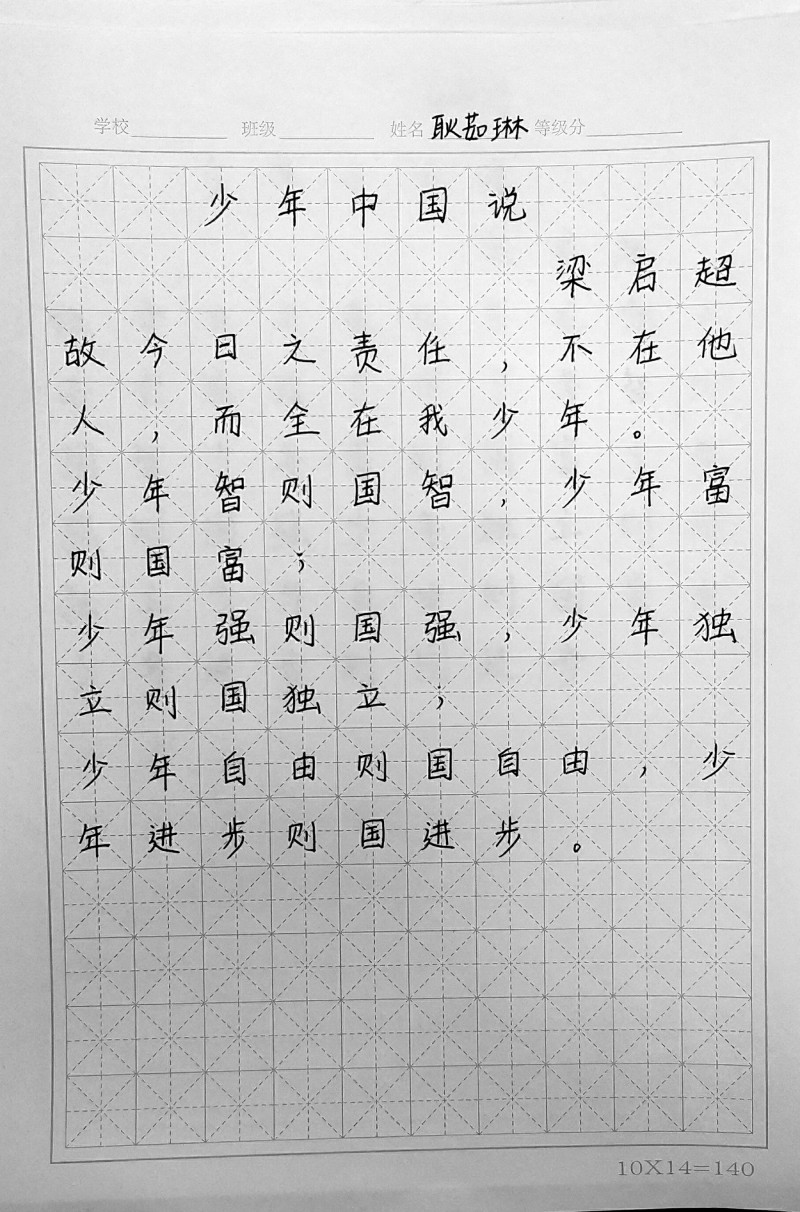 学校 班级 姓名 耿茹琳 等级分
少年中国说
梁启超
故今日之责任，不在他
人，而全在我少年。
少年智则国智，少年富
则国富；
少年强则国强，少年独
立则国独立；
少年自由则国自由，少
年进步则国进步。
10X14=140